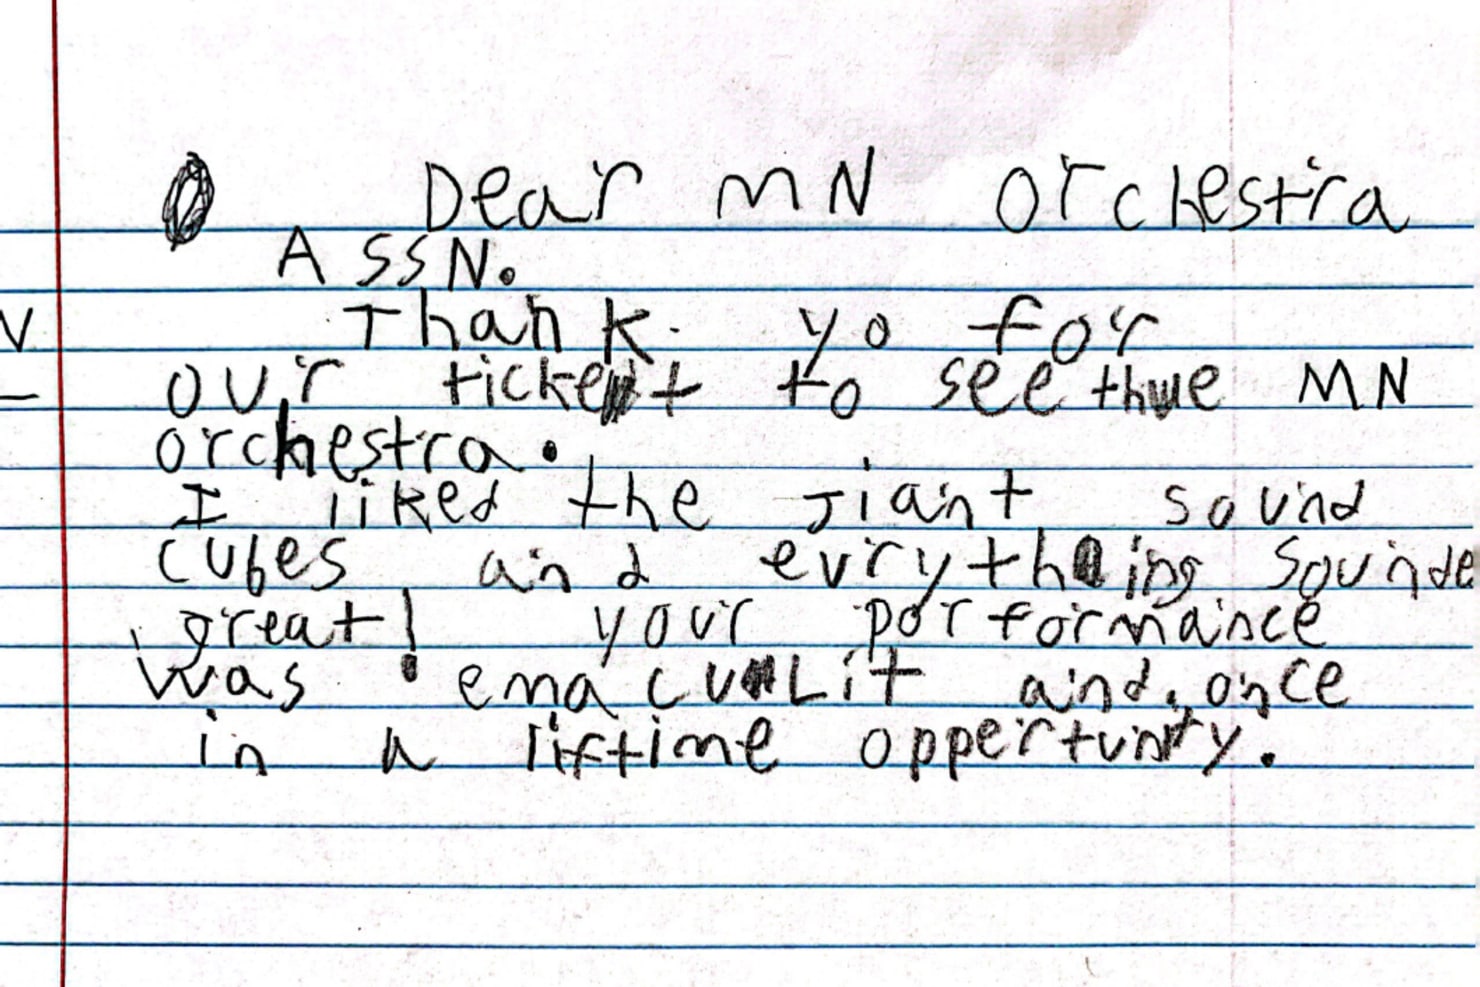 Dear MN Orchestra
ASSN.
Thank yo for
our ticket to see the MN
orchestra.
I liked the Jiant sound
cubes and evrything sounde
great! your porformance
was emaculit and once
in a liftime oppertunty.